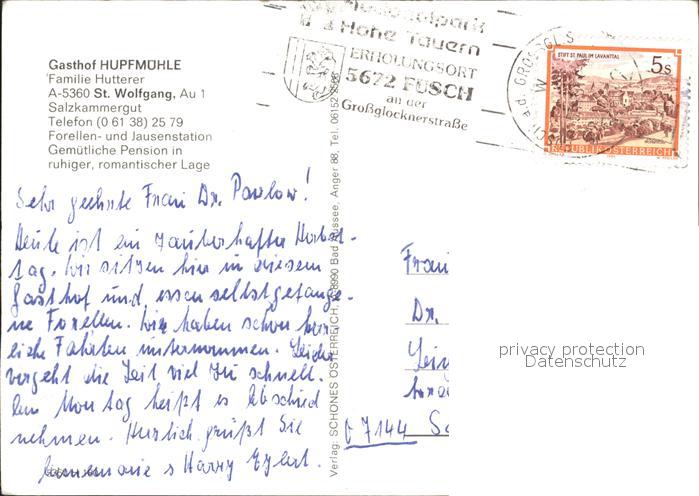 Gasthof HUPFMÜHLE
Familie Hutterer
A-5360 St. Wolfgang, Au 1
Salzkammergut
Telefon (0 61 38) 25 79
Forellen- und Jausenstation
Gemütliche Pension in
ruhiger, romantischer Lage
Nationalpark
Hohe Tauern
ERHOLUNGSORT
5672 FUSCH
an der
Großglocknerstraße
STIFT ST. PAUL IM LAVANTTAL
5s
REPUBLIK ÖSTERREICH
Sehr geehrte Frau Dr. Pawlow!
Heute ist ein zauberhafter Herbst-
tag. Wir sitzen hier in diesem
Gasthof und essen selbstgefange-
ne Forellen. Wir haben schon herr-
liche Fahrten unternommen. Leider
vergeht die Zeit viel zu schnell.
Am Montag heißt es Abschied
nehmen. Herzlich grüßt Sie
Annemarie Harry
Verlag: SCHÖNES ÖSTERREICH, 8990 Bad Aussee, Anger 88, Tel. 06152
Frau
Dr.
D 7144
privacy protection
Datenschutz